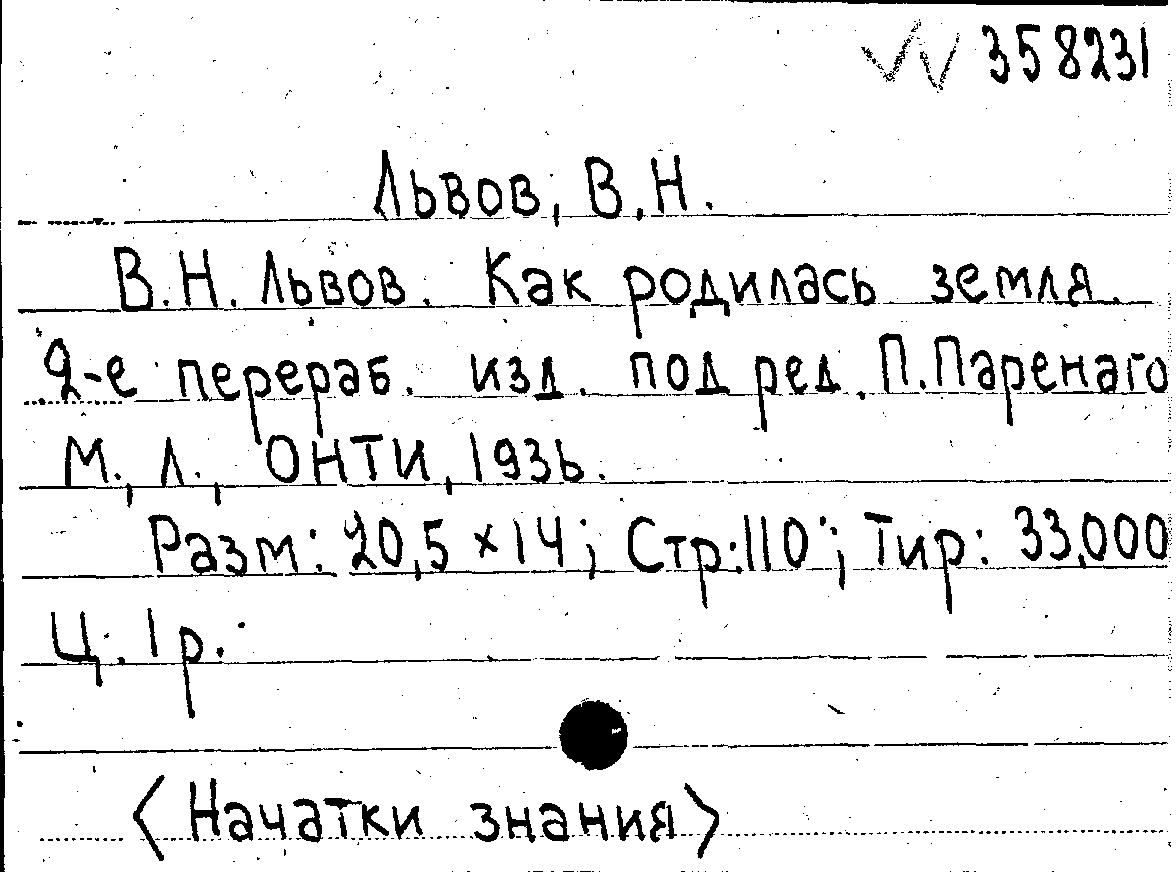 358231
Львов, В.Н.
В.Н. Львов. Как родилась земля.
2-е перераб. изд. под ред. П.Паренаго
М., Л., ОНТИ, 1936.
Разм: 20,5 x 14; Стр:110; Тир: 33,000
Ц. 1 р.
<Начатки знания>